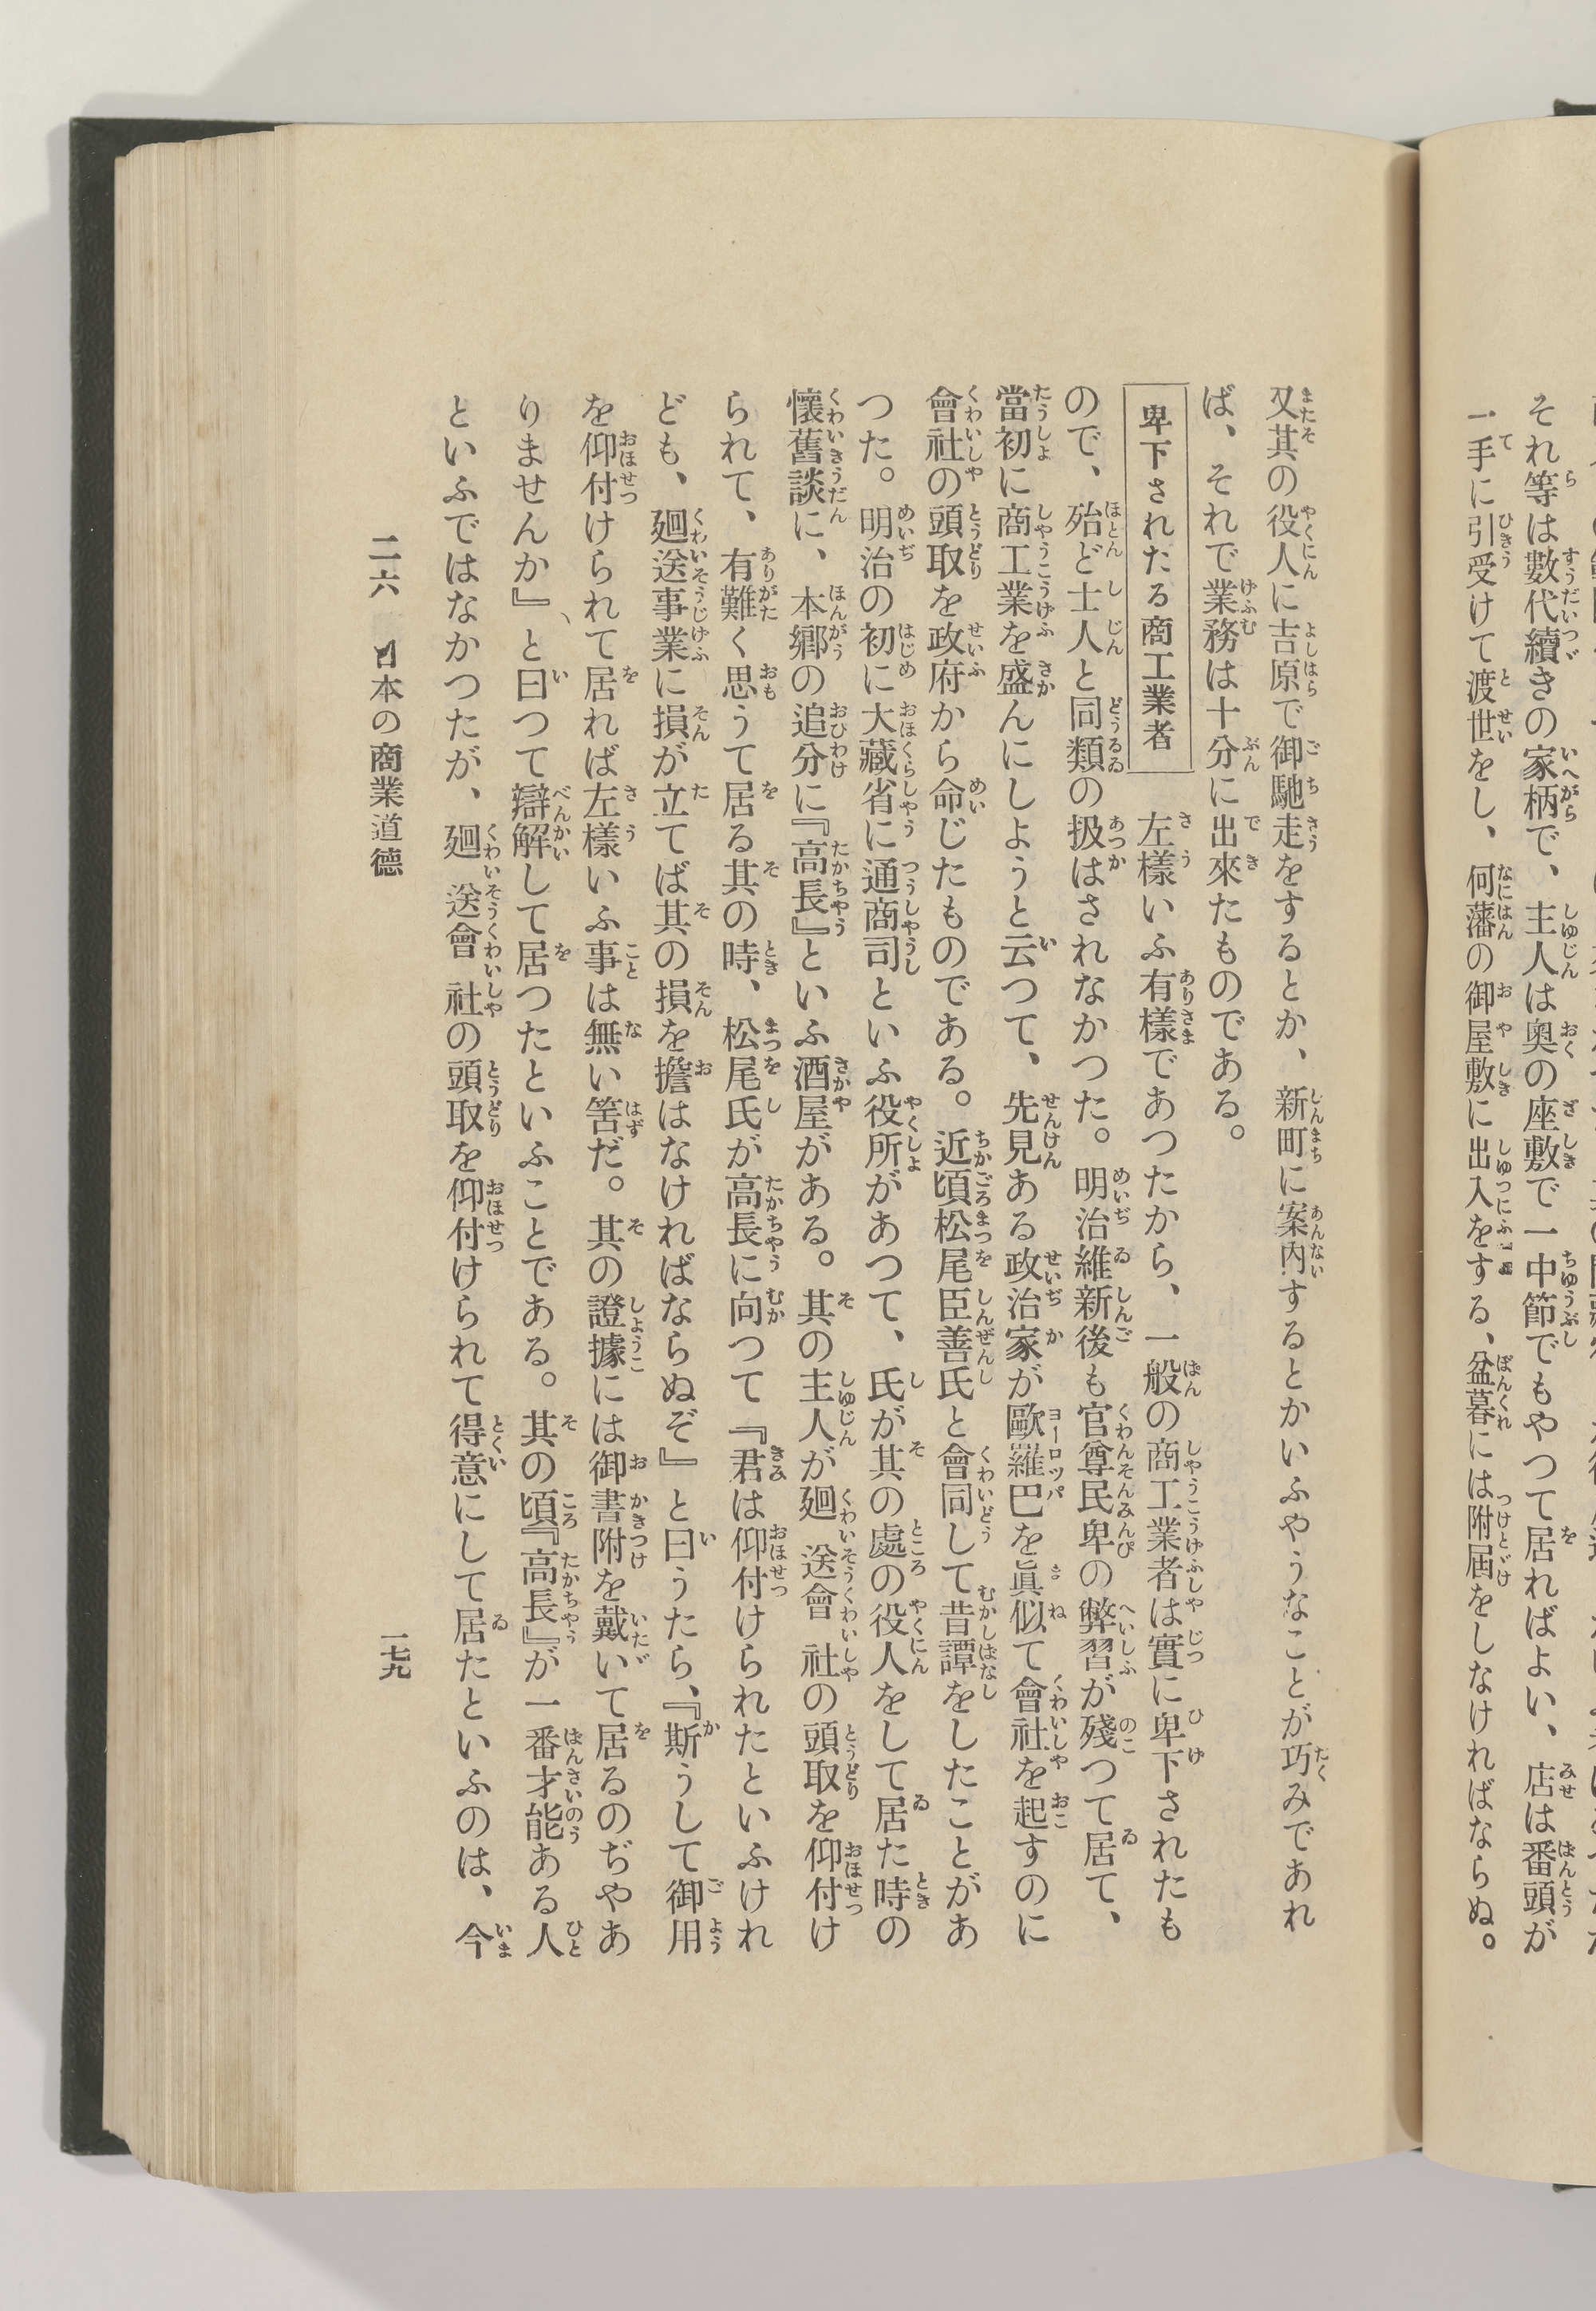 それ等は數代續きの家柄で、主人は奥の座敷で一中節でもやつて居ればよい、店は番頭が
一手に引受けて渡世をし、何藩の御屋敷に出入をする、盆暮には附屆をしなければならぬ。
又其の役人に吉原で御馳走をするとか、新町に案内するとかいふやうなことが巧みであれ
ば、それで業務は十分に出來たものである。
卑下されたる商工業者
左樣いふ有樣であつたから、一般の商工業者は實に卑下されたも
ので、殆ど士人と同類の扱はされなかつた。明治維新後も官尊民卑の弊習が殘つて居て、
當初に商工業を盛んにしようと云つて、先見ある政治家が歐羅巴を眞似て會社を起すのに
會社の頭取を政府から命じたものである。近頃松尾臣善氏と會同して昔譚をしたことがあ
つた。明治の初に大藏省に通商司といふ役所があつて、氏が其の處の役人をして居た時の
懷舊談に、本鄕の追分に『高長』といふ酒屋がある。其の主人が廻送會社の頭取を仰付け
られて、有難く思うて居る其の時、松尾氏が高長に向つて『君は仰付けられたといふけれ
ども、廻送事業に損が立てば其の損を擔はなければならぬぞ』と曰うたら、『斯うして御用
を仰付けられて居れば左樣いふ事は無い筈だ。其の證據には御書附を戴いて居るのぢやあ
りませんか』、と曰つて辯解して居つたといふことである。其の頃『高長』が一番才能ある人
といふではなかつたが、廻送會社の頭取を仰付けられて得意にして居たといふのは、今
二六 日本の商業道德
一七九